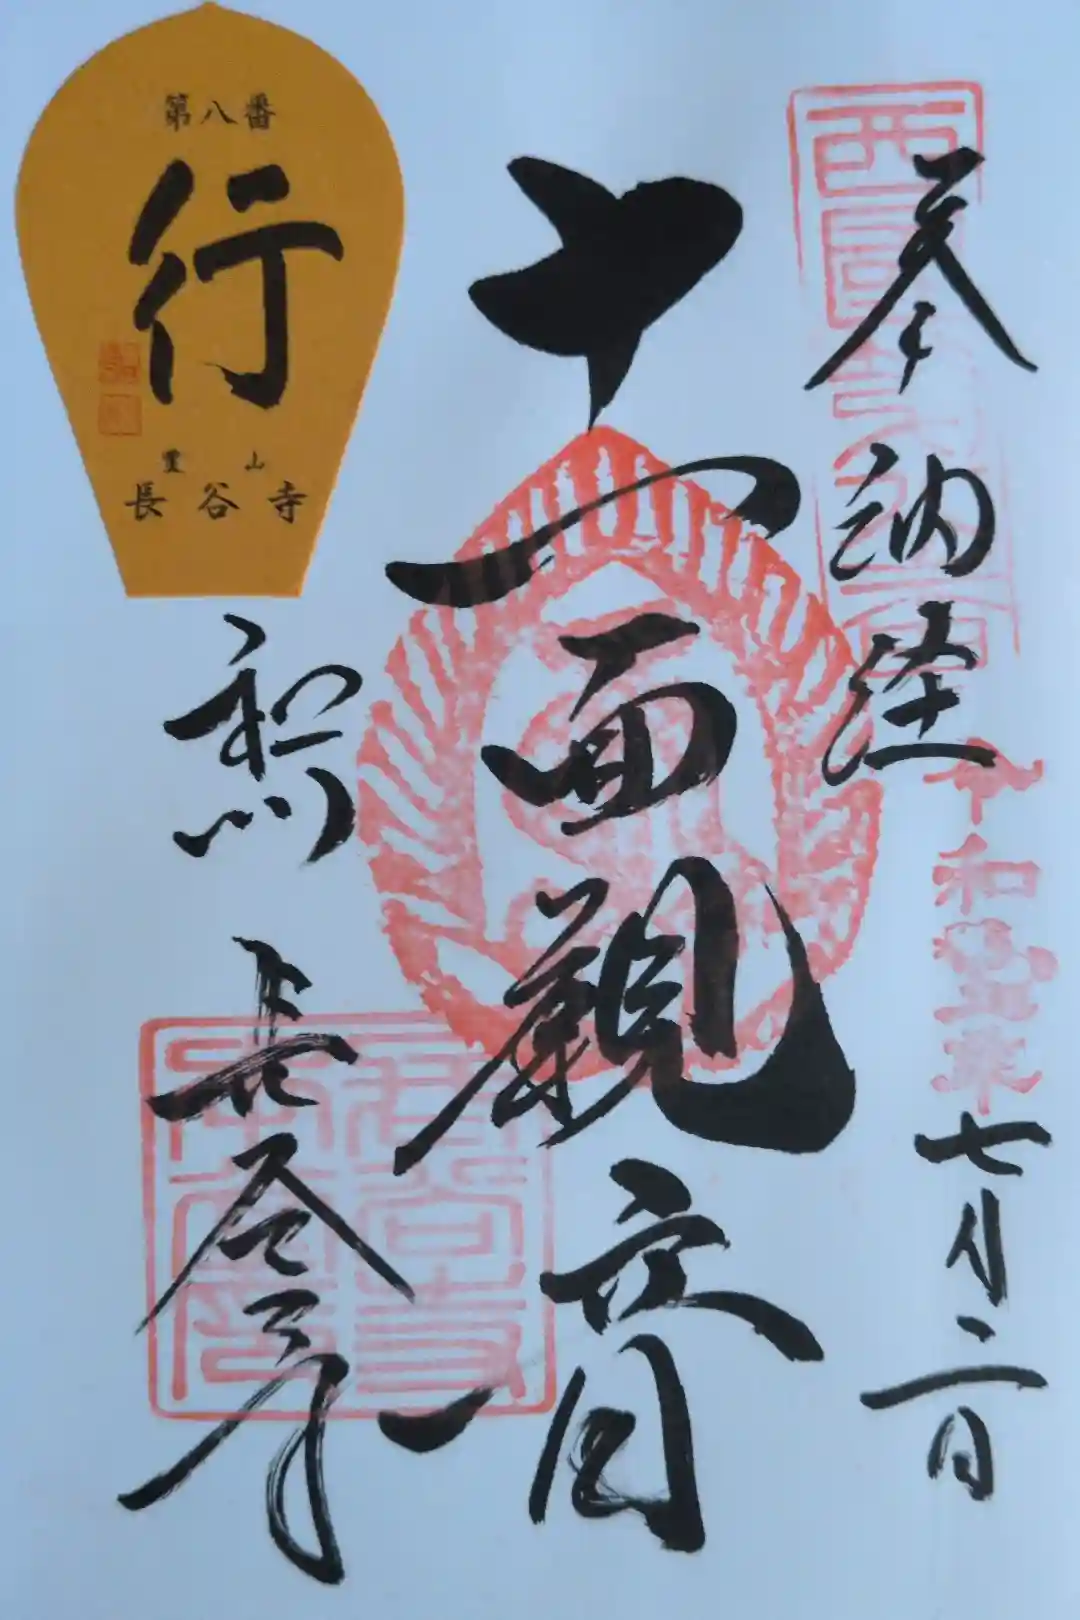 奉納経
令和
七月二日
十一面観音
第八番
行
豊山
長谷寺
和州
長谷寺